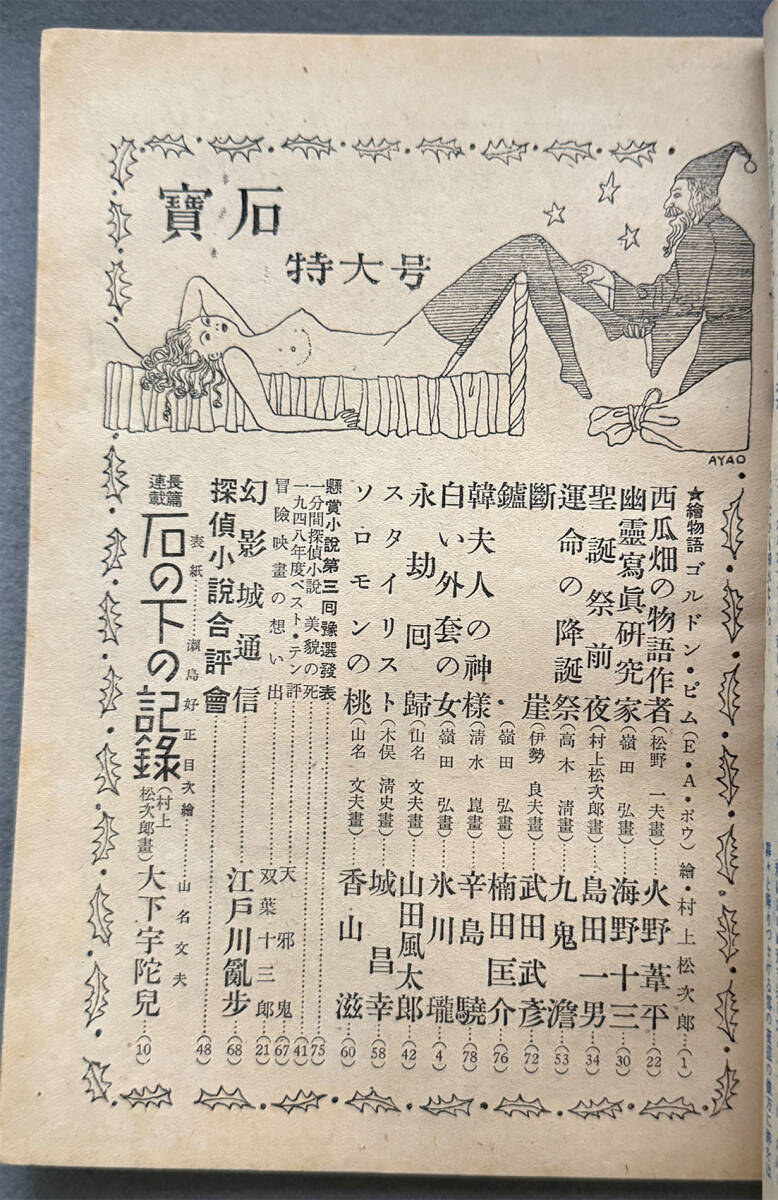 寶石
特大号
AYAO
★繪物語 ゴルドン・ピム(E・A・ポウ)繪・村上松次郎…(1)
西瓜畑の物語作者(松野一夫畫)…火野葦平…(22)
幽靈寫眞研究家(嶺田弘畫)…海野十三…(30)
聖誕祭前夜(村上松次郎畫)…島田一男…(34)
運命の降誕祭(高木清畫)…九鬼澹…(53)
斷崖(伊勢良夫畫)…武田武彥…(72)
鑪・(嶺田弘畫)…楠田匡介…(76)
韓夫人の神樣(清水崑畫)…辛島驍…(78)
白い外套の女(嶺田弘畫)…氷川瓏…(4)
永劫回歸(山名文夫畫)…山田風太郎…(42)
スタイリスト(木俣清史畫)…城昌幸…(58)
ソロモンの桃(山名文夫畫)…香山滋…(60)
懸賞小說第三回豫選發表…(75)
一分間探偵小說 美貌の死…(41)
一九四八年度ベスト・テン評…天邪鬼…(67)
冒險映畫の想い出…双葉十三郎…(21)
幻影城通信…江戸川亂步…(68)
探偵小說合評會…(48)
表紙…瀬島好正 目次繪…山名文夫
長篇連載 石の下の記錄(村上松次郎畫)大下宇陀兒…(10)